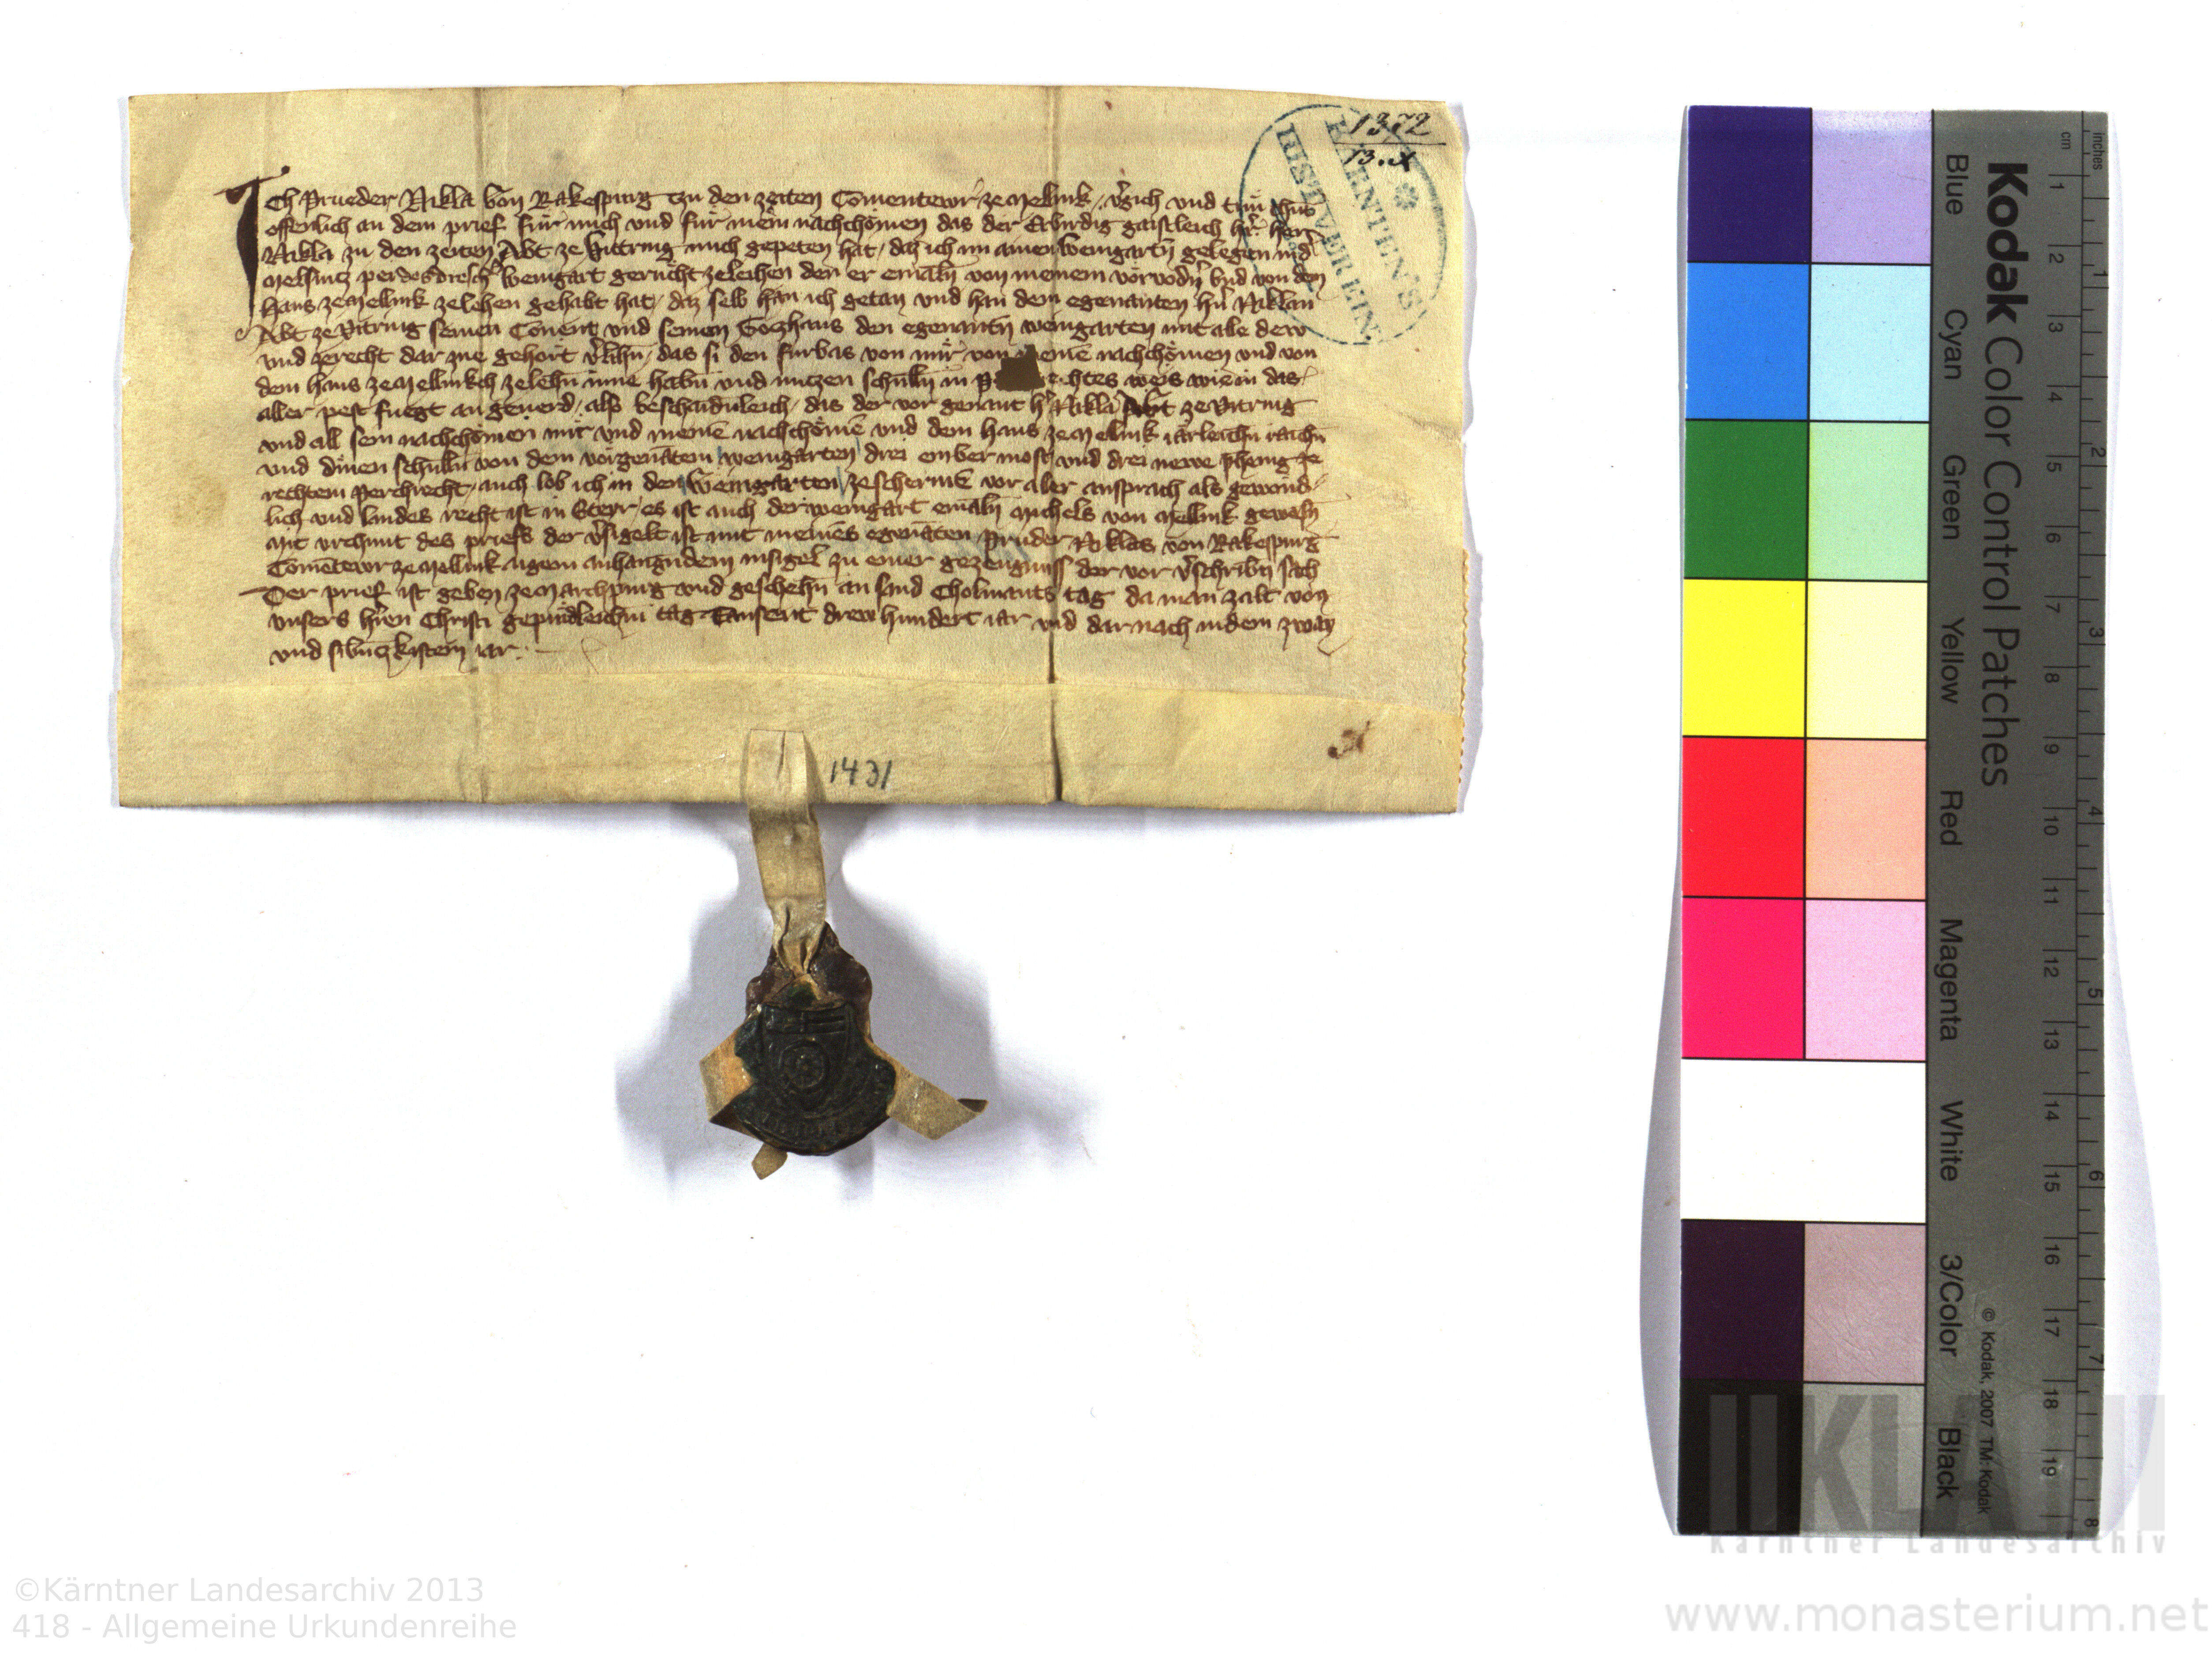 1372
13. X
KÄRNTEN'S
HIST. VEREIN.
Ich Prueder Nikla von Rakespurg tzu den zeiten Comentewr ze Mellink vˢgich und tun chunt
offenlich an dem prief fur mich und fur mein nachchomen das der Erburdig gaistleich hˢr herr
Nikla zu den zeiten Abt ze Vittring mich gepeten hat / daz ich im ainen weingartn̄ gelegen
perdesdresch weingart gerucht ze leihen den er emaln̄ von meinem vorvodn̄ vnd von dem
haus ze Mellink ze lehen gehabt hat / daz selb han ich getan vnd han dem egenanten hn̄ Niklan
Abt ze Vitring seinen Conent vnd seinem Gotzhaus den egenantn̄ weingarten mit alle dew
vnd zerecht dar zue gehort vˢlihn̄ / das si den furbas von mir von meinē nachchomen vnd von
dem haus ze Mellinkch ze lehn̄ inne habn̄ vnd nutzen schulln̄ in echtes weis wie in das
aller pest fuegt an geuerd / also beschaidnleich / das der vor genant hˢ Nikla Abt ze Vitring
vnd all sein nachchomen mir vnd meinē nachchomē vnd dem haus ze Mellink iarleichn̄ raichn̄
vnd dinen schulln̄ von dem vorgenātem weingarten drei ember most vnd drei newe phenig ze
rechtem Perchrecht / auch lob ich in den weingarten ze schermē vor aller ansprach als gewond
lich vnd landes recht ist in Steyr / es ist auch der weingart emaln̄ Michels von Mellink gewesn̄
Mit vrchunt des priefs der vˢsigelt ist mit meines egenāten Pruder Niklas von Rakespurg
Comētewr ze Mellink aigem anhangndem insigel zu einer gezeugnuss der vor vˢschribn̄ sach
Der prief ist geben ze Marchpurg vnd geschehn̄ an sand Cholmants tag da man zalt von
vnsers hˢren Christi gepurdleichm tag Tausent drew hundert iar vnd dar nach in dem zway
vnd sibentzkistem iar
1431
Kodak Color Control Patches
Blue
Cyan
Green
Yellow
Red
Magenta
White
3/Color
Black
© Kodak, 2007 TM: Kodak
inches
1 2 3 4 5 6 7 8
cm
1 2 3 4 5 6 7 8 9 10 11 12 13 14 15 16 17 18 19
KLA
Kärntner Landesarchiv
©Kärntner Landesarchiv 2013
418 - Allgemeine Urkundenreihe
www.monasterium.net